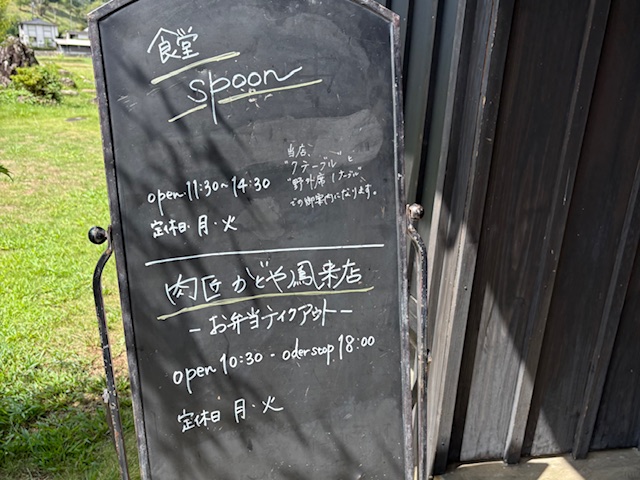 食堂
spoon
当店、
"7テーブル"と
"野外席1テーブル"
での御案内になります。
open 11:30~14:30
定休日・月・火
肉匠 かどや鳳来店
-お弁当テイクアウト-
open 10:30 - oder stop 18:00
定休日 月・火